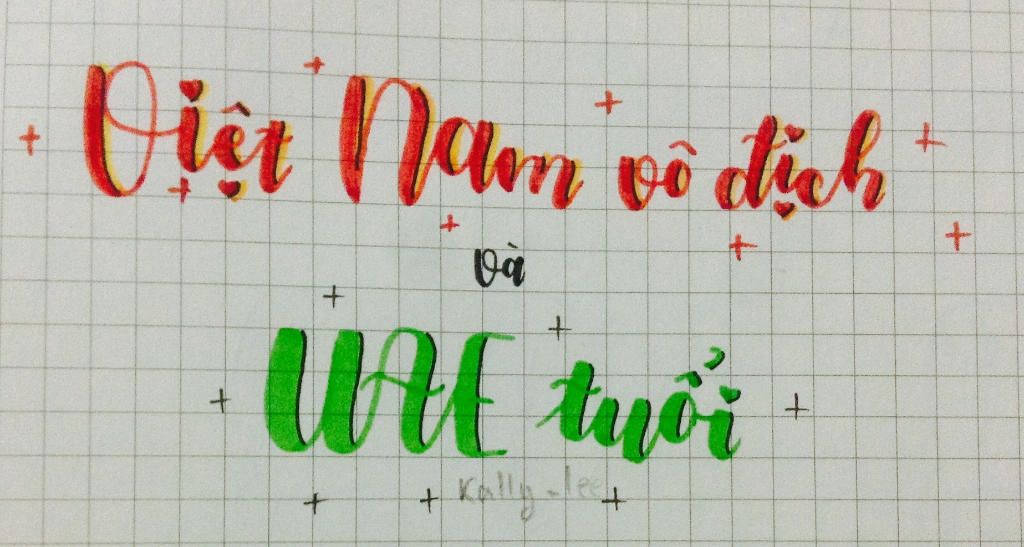 Việt Nam vô địch
và
UAE tuổi
Kally-lee